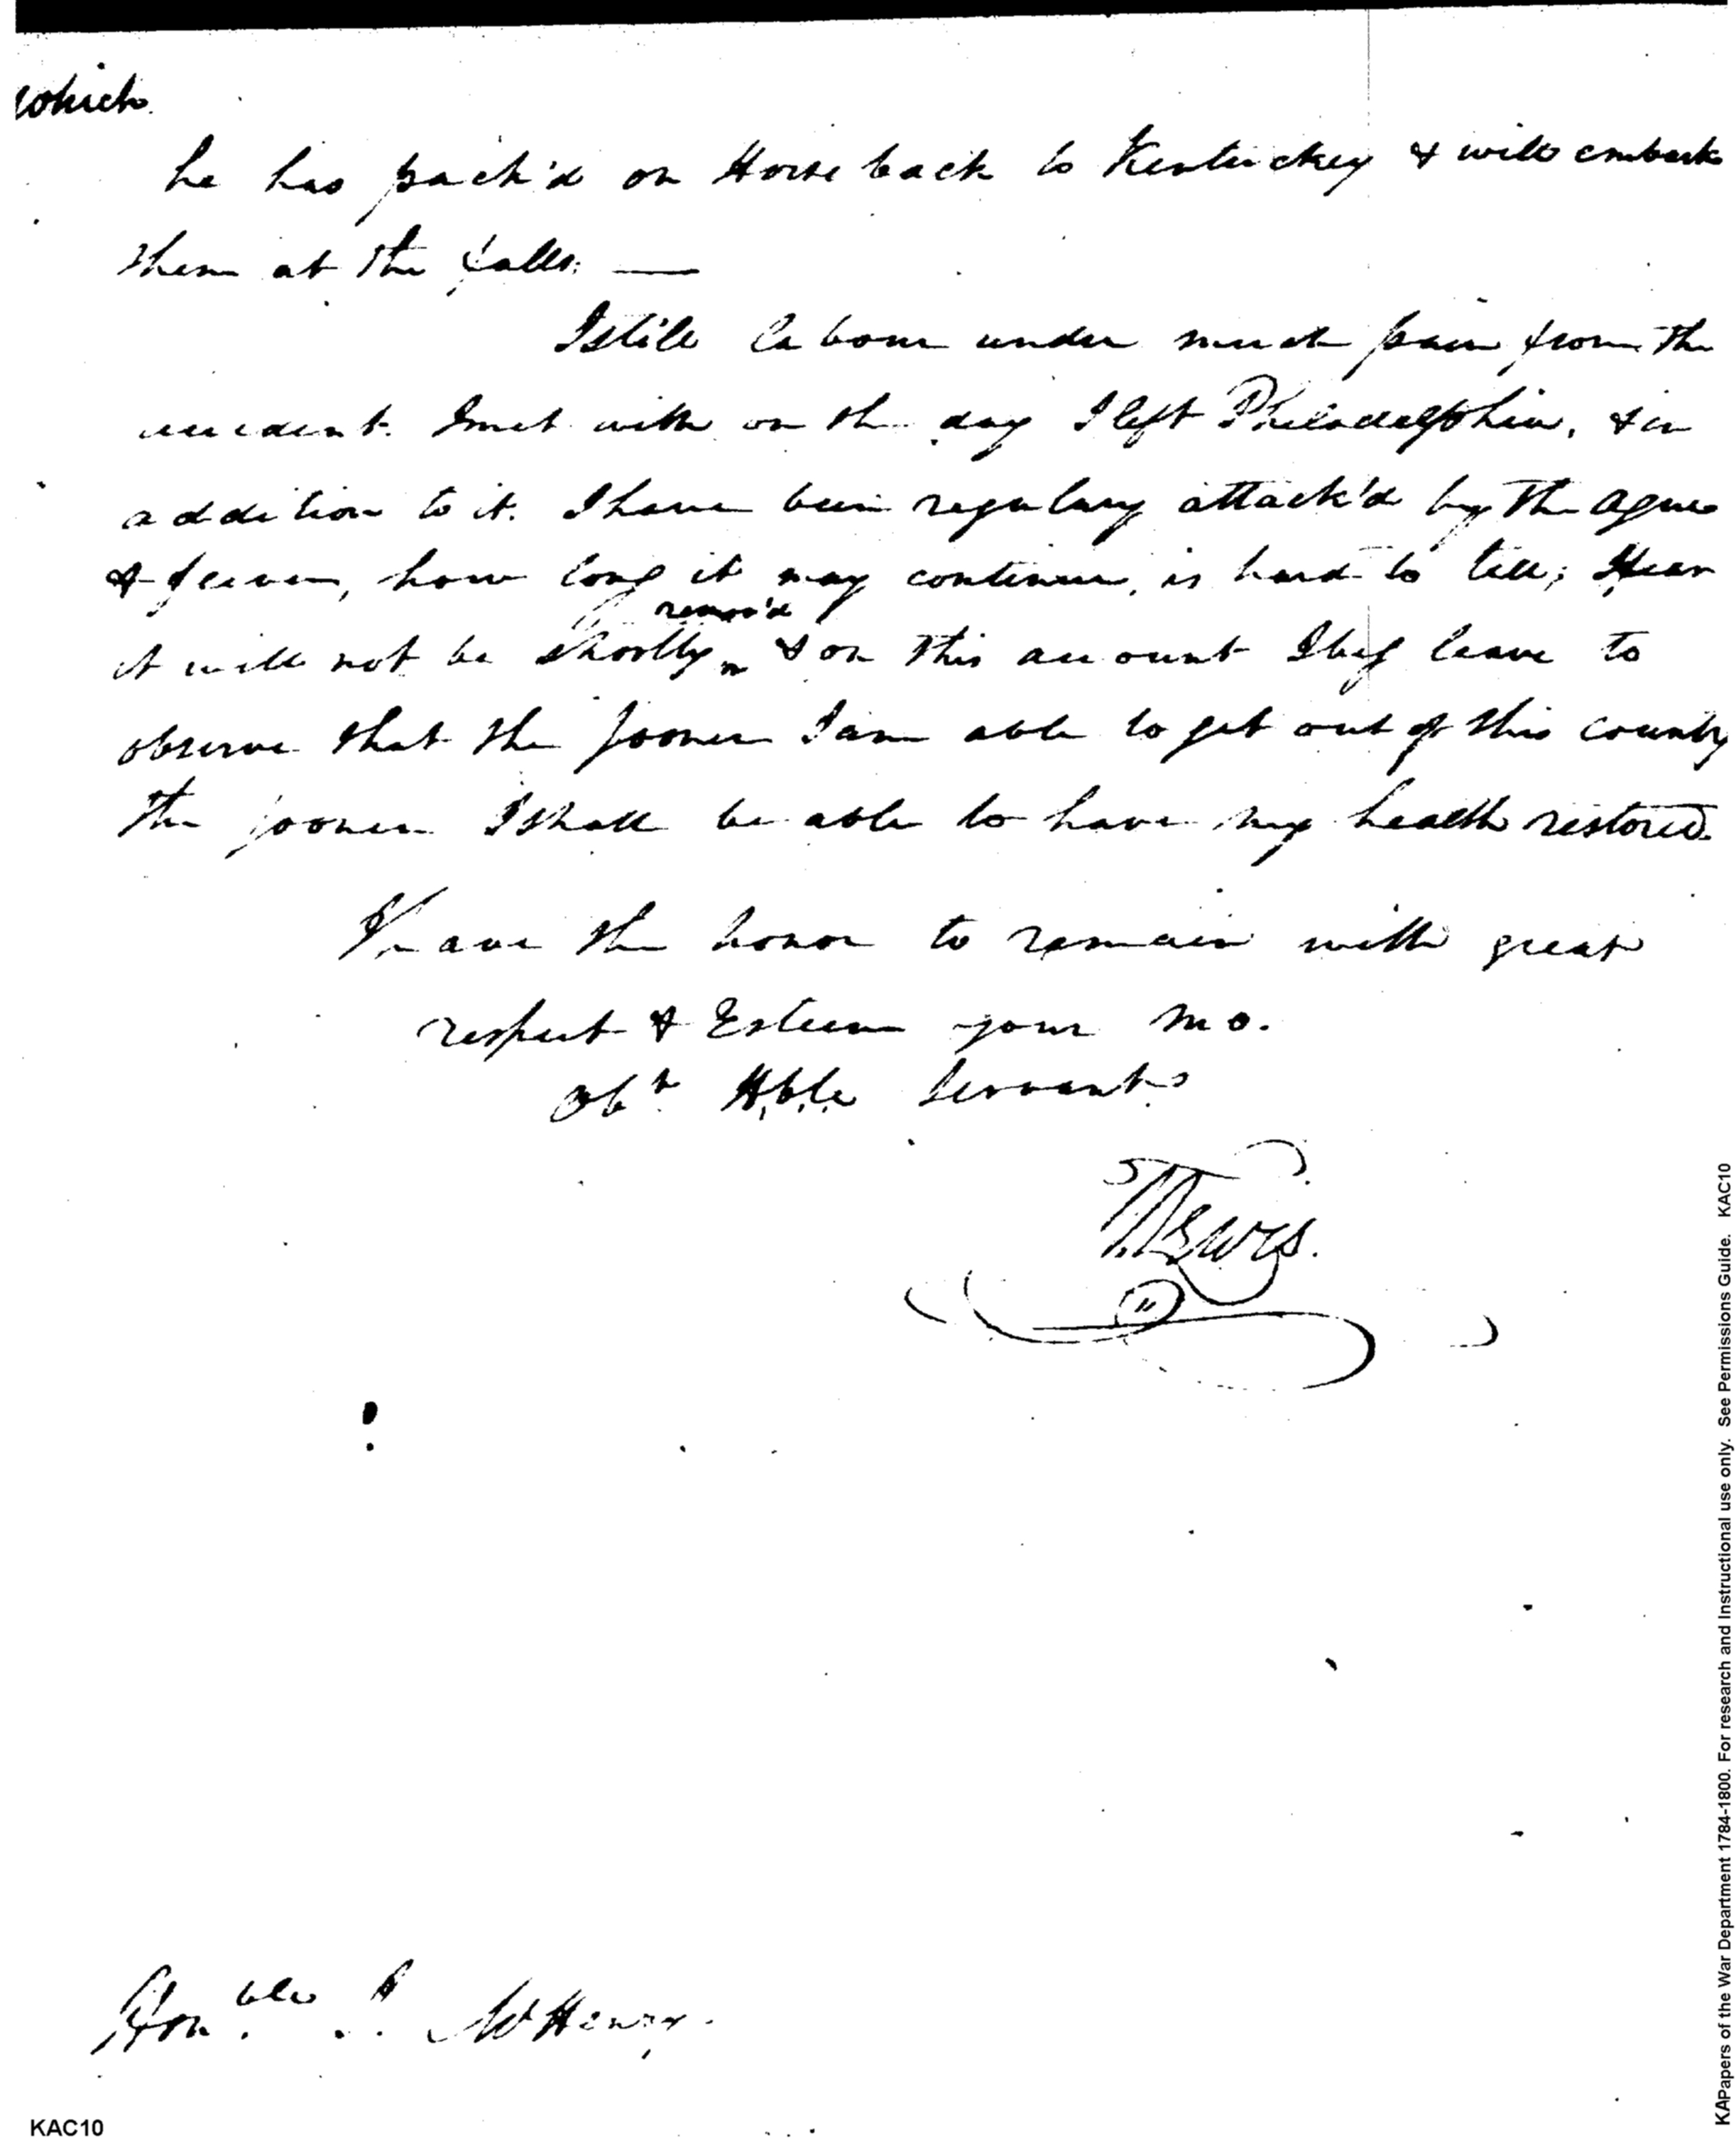 which
he has pack'd on Horse back to Kentuckey & will embark
them at the falls. —
I still labour under much pain from the
accident I met with on the day I left Philadelphia, & in
addition to it. I have been regulary attack'd by the ague
& feever, how long it may continue, is hard to tell;
remov'd
it will not be shortly & on this account I beg leave to
observe that the sooner I am able to get out of this country
the sooner I shall be able to have my health restored.
I have the honor to remain with great
respect & Esteem your mo.
Obt Hble Servant
T Lewis.
Honble J. McHenry.
KAC10
KAPapers of the War Department 1784-1800. For research and Instructional use only. See Permissions Guide. KAC10